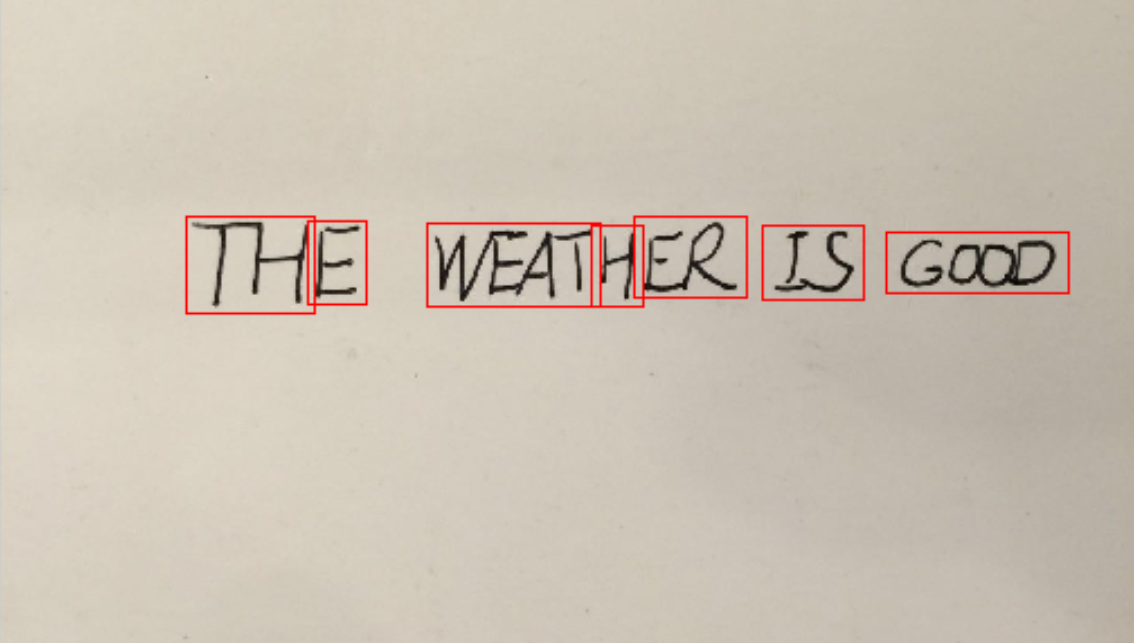 THE WEATHER IS GOOD